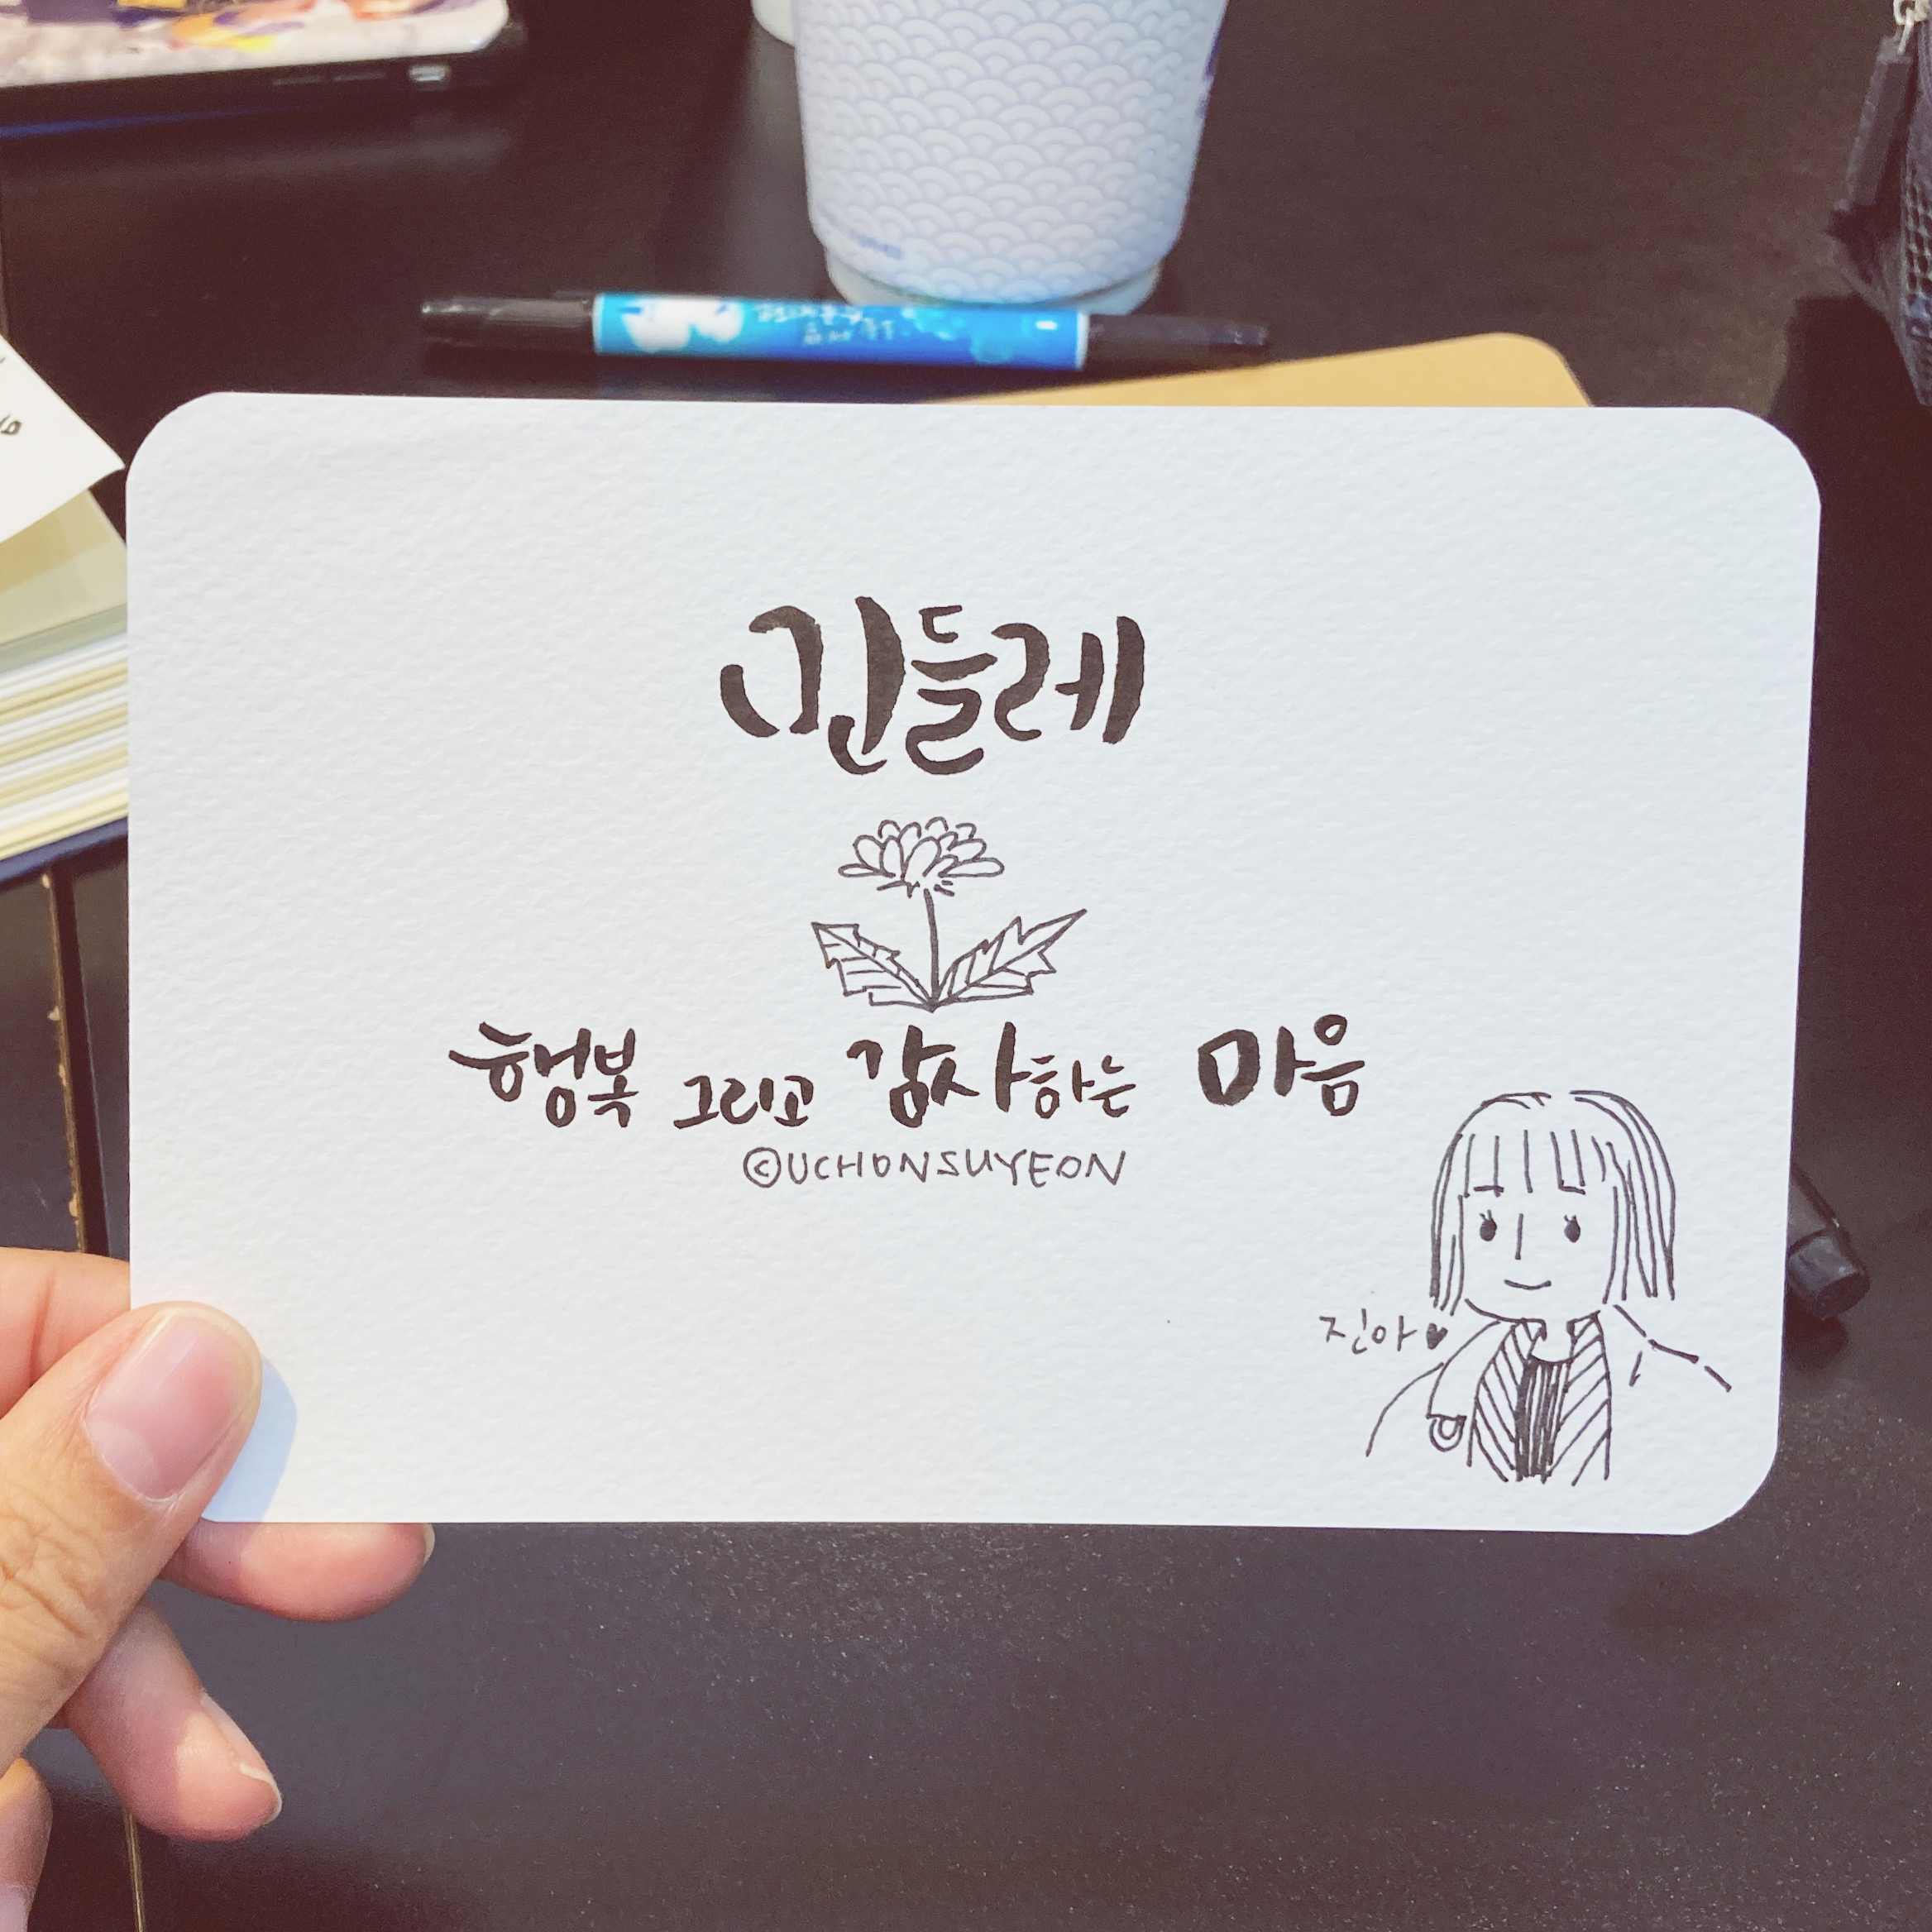 민들레
행복 그리고 감사하는 마음
©UCHONSUYEON
진아♥